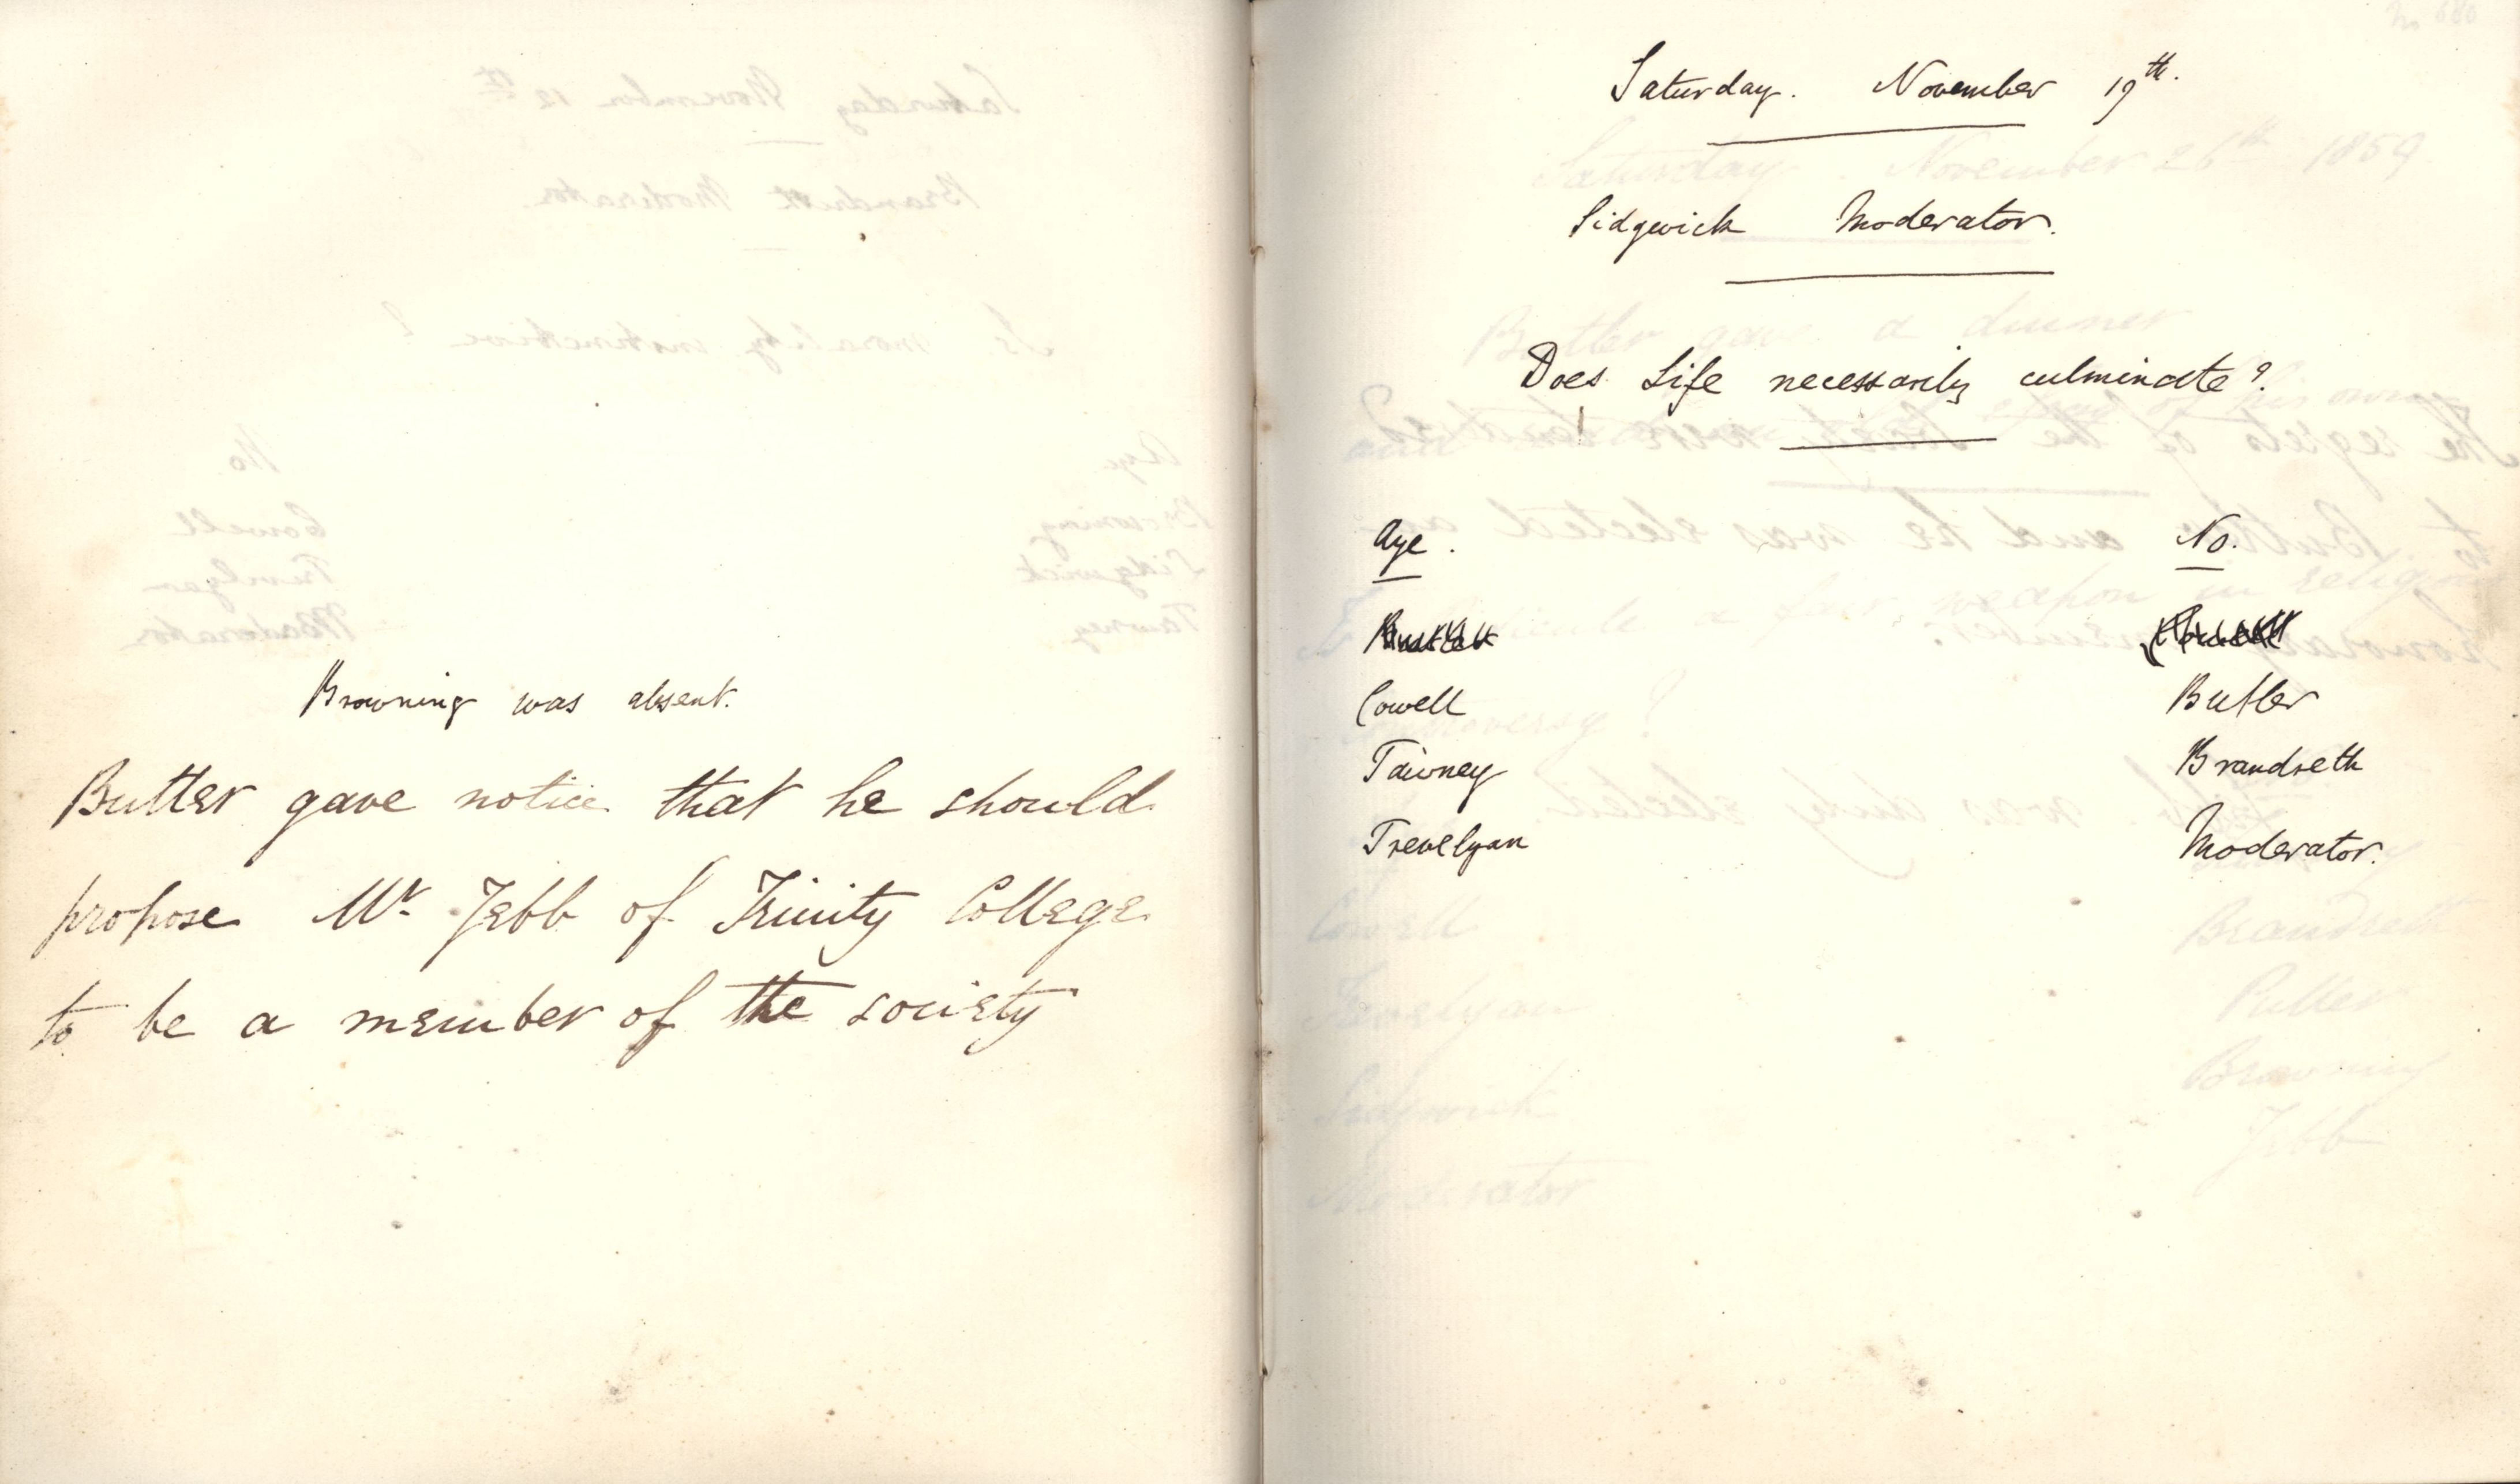 Browning was absent.
Butler gave notice that he should
propose Mr Jebb of Trinity College
to be a member of the society
Saturday. November 19th.
Sidgwick Moderator.
Does Life necessarily culminate?
Aye. No.
Cowell Butler
Tawney Brandreth
Trevelyan Moderator.